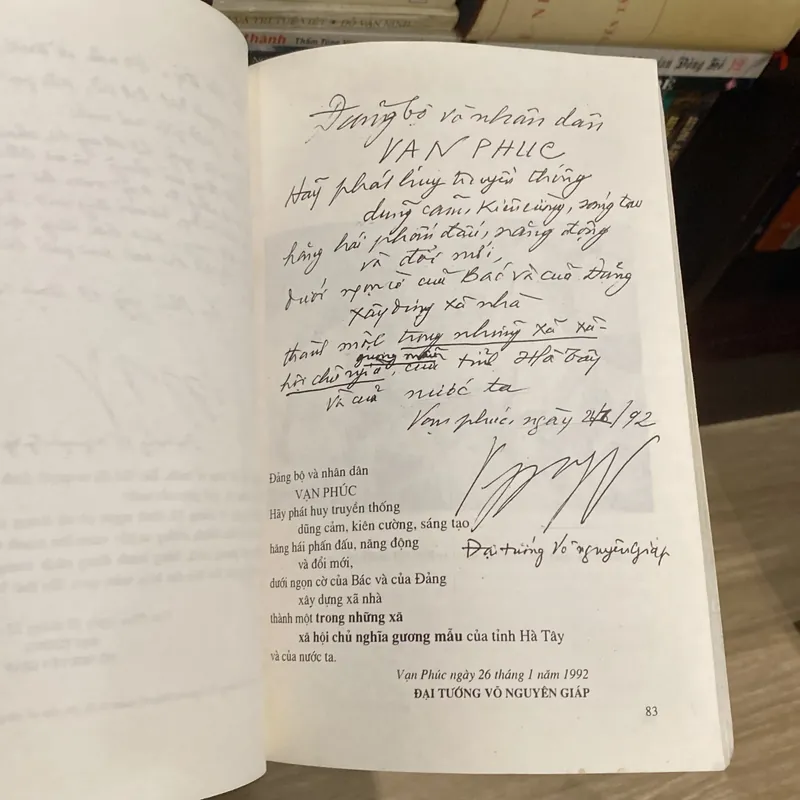 VÀ TRÍ TUỆ VIỆT • ĐỖ VĂN NINH
thành
Đảng bộ và nhân dân
VẠN PHÚC
Hãy phát huy truyền thống
dũng cảm, kiên cường, sáng tạo
hăng hái phấn đấu, năng động
và đổi mới,
dưới ngọn cờ của Bác và của Đảng
xây dựng xã nhà
thành một trong những xã xã-
hội chủ nghĩa gương mẫu, của tỉnh Hà Tây
và của nước ta
Vạn phúc, ngày /92
Đại tướng Võ nguyên Giáp
Đảng bộ và nhân dân
VẠN PHÚC
Hãy phát huy truyền thống
dũng cảm, kiên cường, sáng tạo,
hăng hái phấn đấu, năng động
và đổi mới,
dưới ngọn cờ của Bác và của Đảng
xây dựng xã nhà
thành một trong những xã
xã hội chủ nghĩa gương mẫu của tỉnh Hà Tây
và của nước ta.
Vạn Phúc ngày 26 tháng 1 năm 1992
ĐẠI TƯỚNG VÕ NGUYÊN GIÁP
83